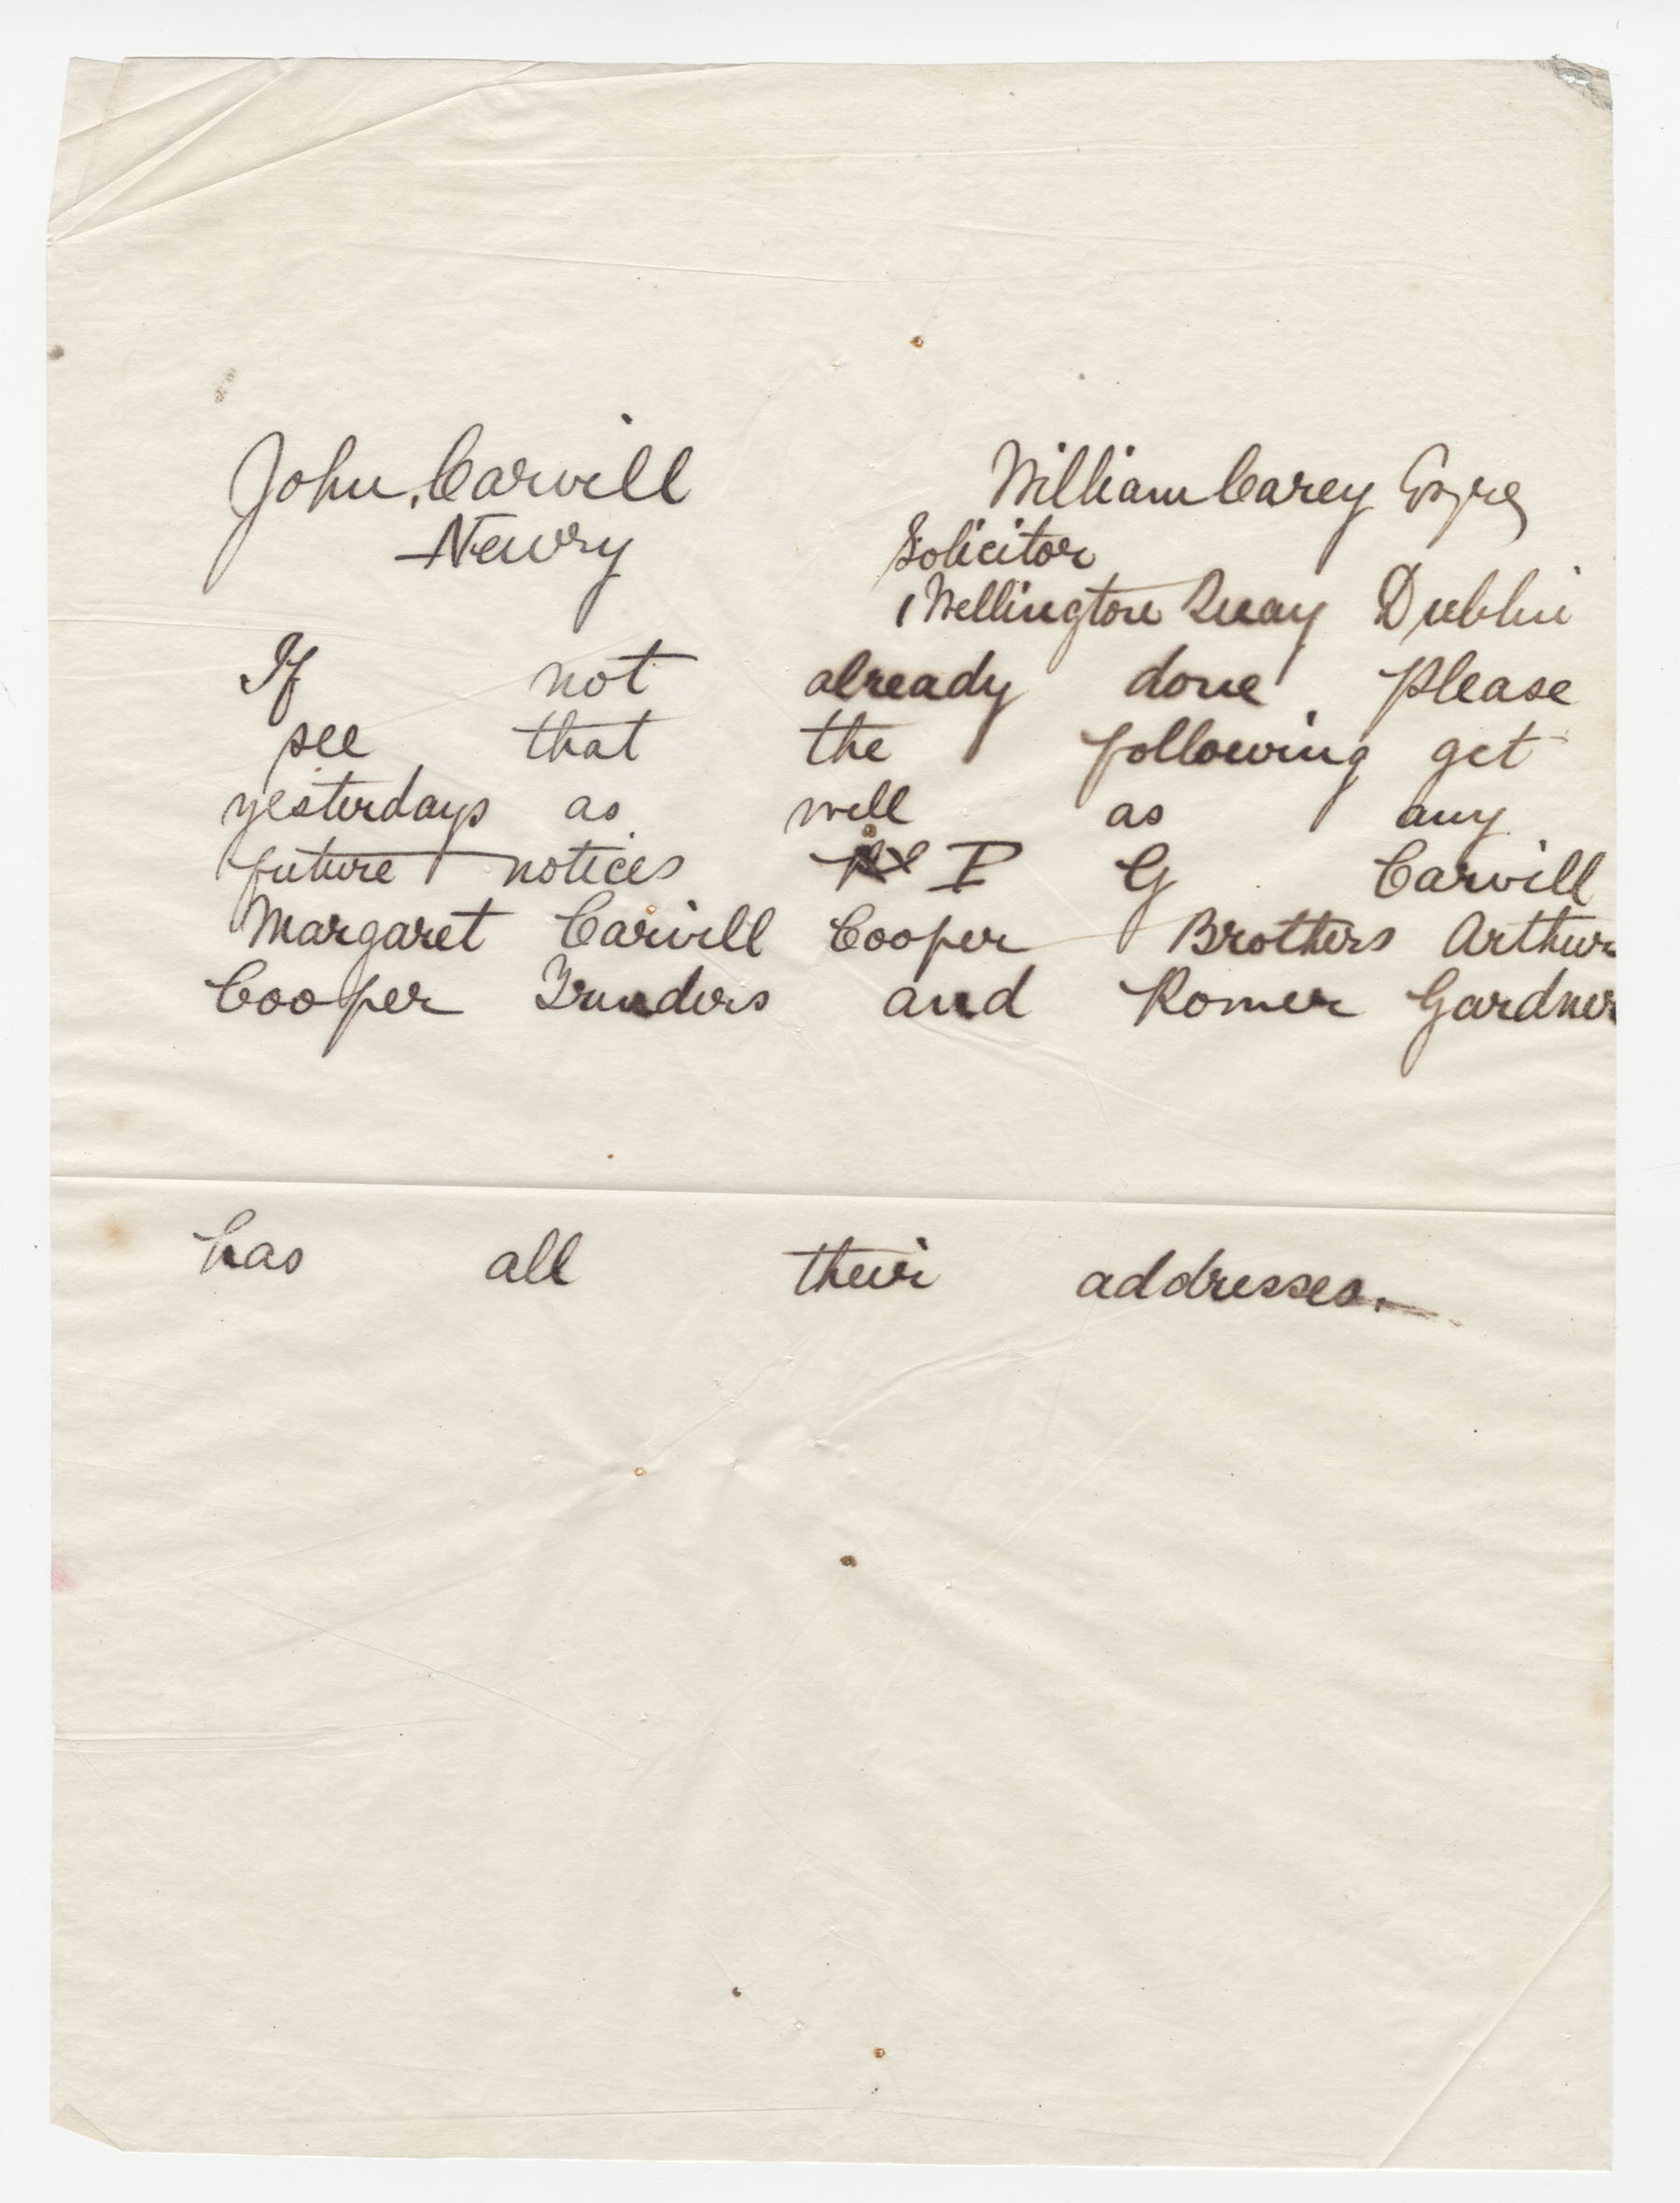 John Carvill William Carey Esqre
Newry Solicitor
1 Wellington Quay Dublin
If not already done please
see that the following get
yesterdays as well as any
future notices P G Carvill
Margaret Carvill Cooper Brothers Arthur
Cooper and Romer Gardner
has all their addresses.